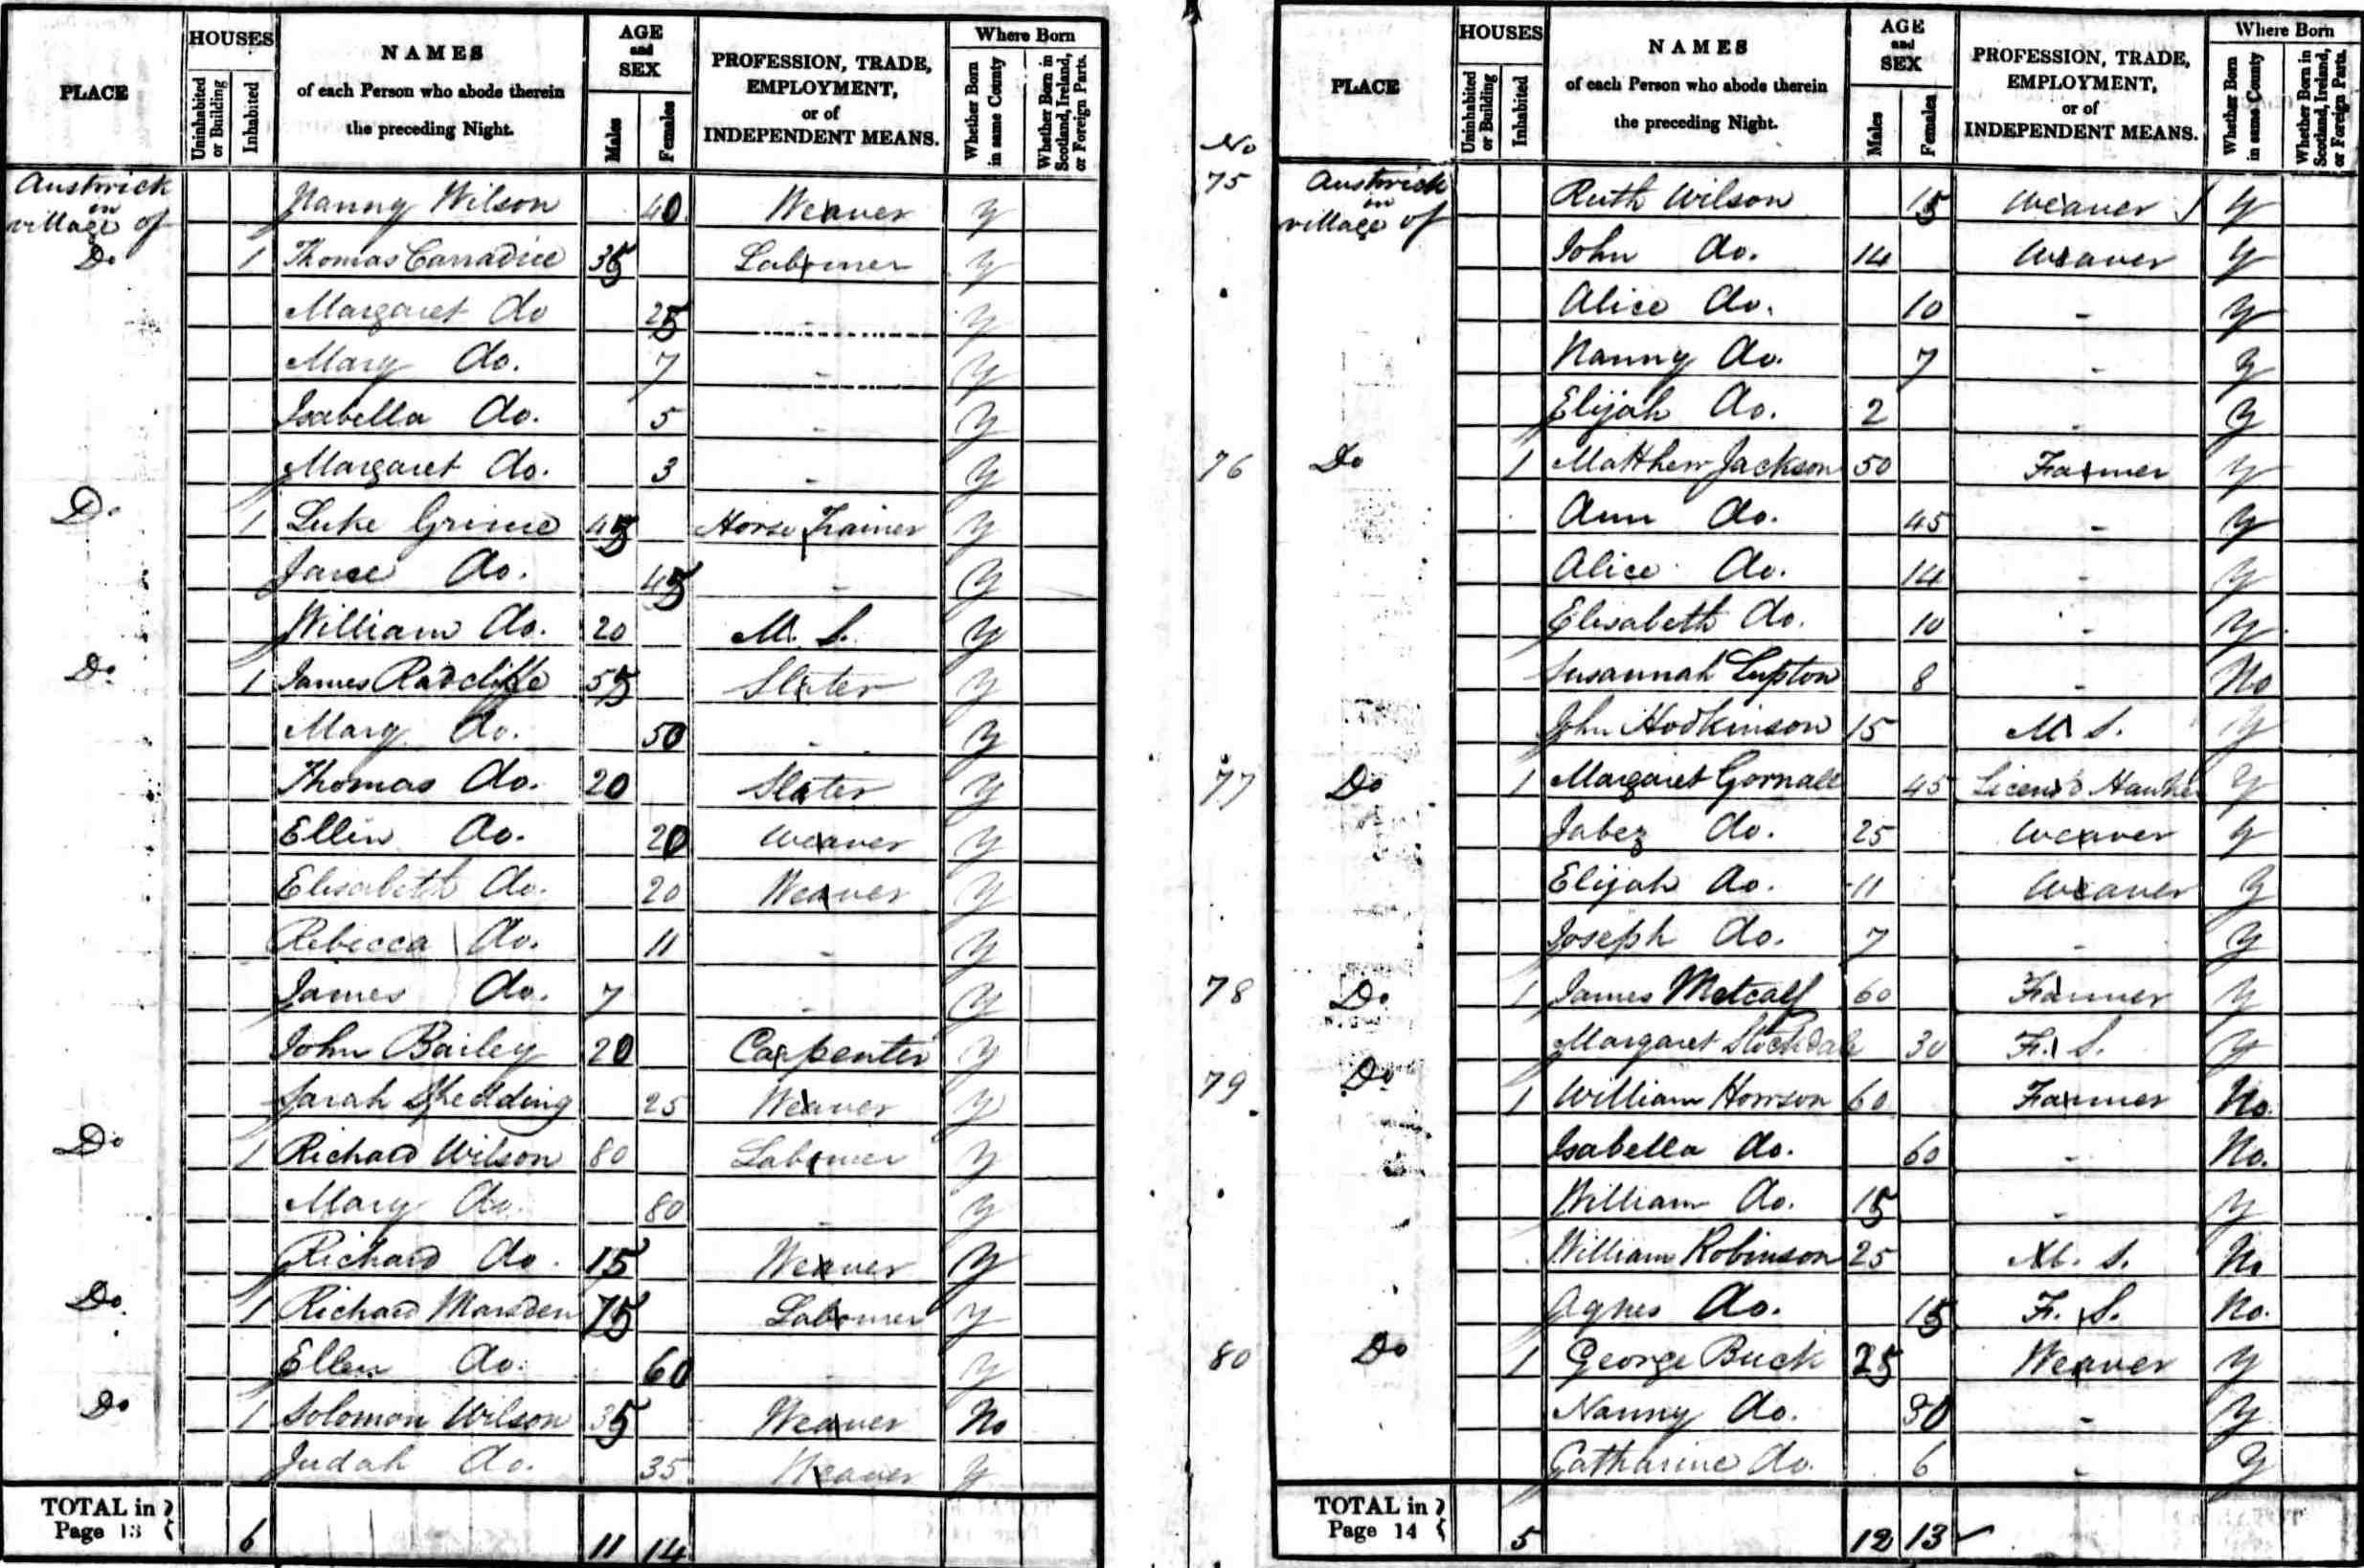 PLACE
HOUSES
Uninhabited or Building
Inhabited
NAMES
of each Person who abode therein
the preceding Night.
AGE
and
SEX
Males
Females
PROFESSION, TRADE,
EMPLOYMENT,
or of
INDEPENDENT MEANS.
Where Born
Whether Born in same County
Whether Born in Scotland, Ireland, or Foreign Parts.
Austwick in village of Nanny Wilson 40 Weaver y
Do 1 Thomas Canadice 35 Labourer y
Margaret do 25 y
Mary do. 7 - y
Isabella do. 5 - y
Margaret do. 3 - y
Do 1 Luke Grime 45 Horse Trainer y
Jane do. 45 - y
William do. 20 M. S. y
Do 1 James Radcliffe 55 Slater y
Mary do. 50 - y
Thomas do. 20 Slater y
Ellin do. 20 Weaver y
Elisabeth do. 20 Weaver y
Rebecca do. 11 - y
James do. 7 - y
John Bailey 20 Carpenter y
Sarah Shedding 25 Weaver y
Do 1 Richard Wilson 80 Labourer y
Mary do. 80 - y
Richard do. 15 Weaver y
Do 1 Richard Marsden 75 Labourer y
Ellen do. 60 - y
Do 1 Solomon Wilson 35 Weaver No
Judah do. 35 Weaver y
TOTAL in Page 13 6 11 14
No
PLACE
HOUSES
Uninhabited or Building
Inhabited
NAMES
of each Person who abode therein
the preceding Night.
AGE
and
SEX
Males
Females
PROFESSION, TRADE,
EMPLOYMENT,
or of
INDEPENDENT MEANS.
Where Born
Whether Born in same County
Whether Born in Scotland, Ireland, or Foreign Parts.
75 Austwick in village of Ruth Wilson 15 Weaver y
John do. 14 Weaver y
Alice do. 10 - y
Nanny do. 7 - y
Elijah do. 2 - y
76 Do 1 Matthew Jackson 50 Farmer y
Ann do. 45 - y
Alice do. 14 - y
Elisabeth do. 10 - y
Susannah Lupton 8 - No
John Hodkinson 15 M. S. y
77 Do 1 Margaret Gornall 45 Licens'd Hawker y
Jabez do. 25 Weaver y
Elijah do. 11 Weaver y
Joseph do. 7 - y
78 Do 1 James Metcalf 60 Farmer y
Margaret Stockdale 30 F. S. y
79 Do 1 William Horrson 60 Farmer No.
Isabella do. 60 - No.
William do. 15 - y
William Robinson 25 M. S. No
Agnes do. 15 F. S. No.
80 Do 1 George Buck 25 Weaver y
Nanny do. 30 - y
Catharine do. 6 - y
TOTAL in Page 14 5 12 13